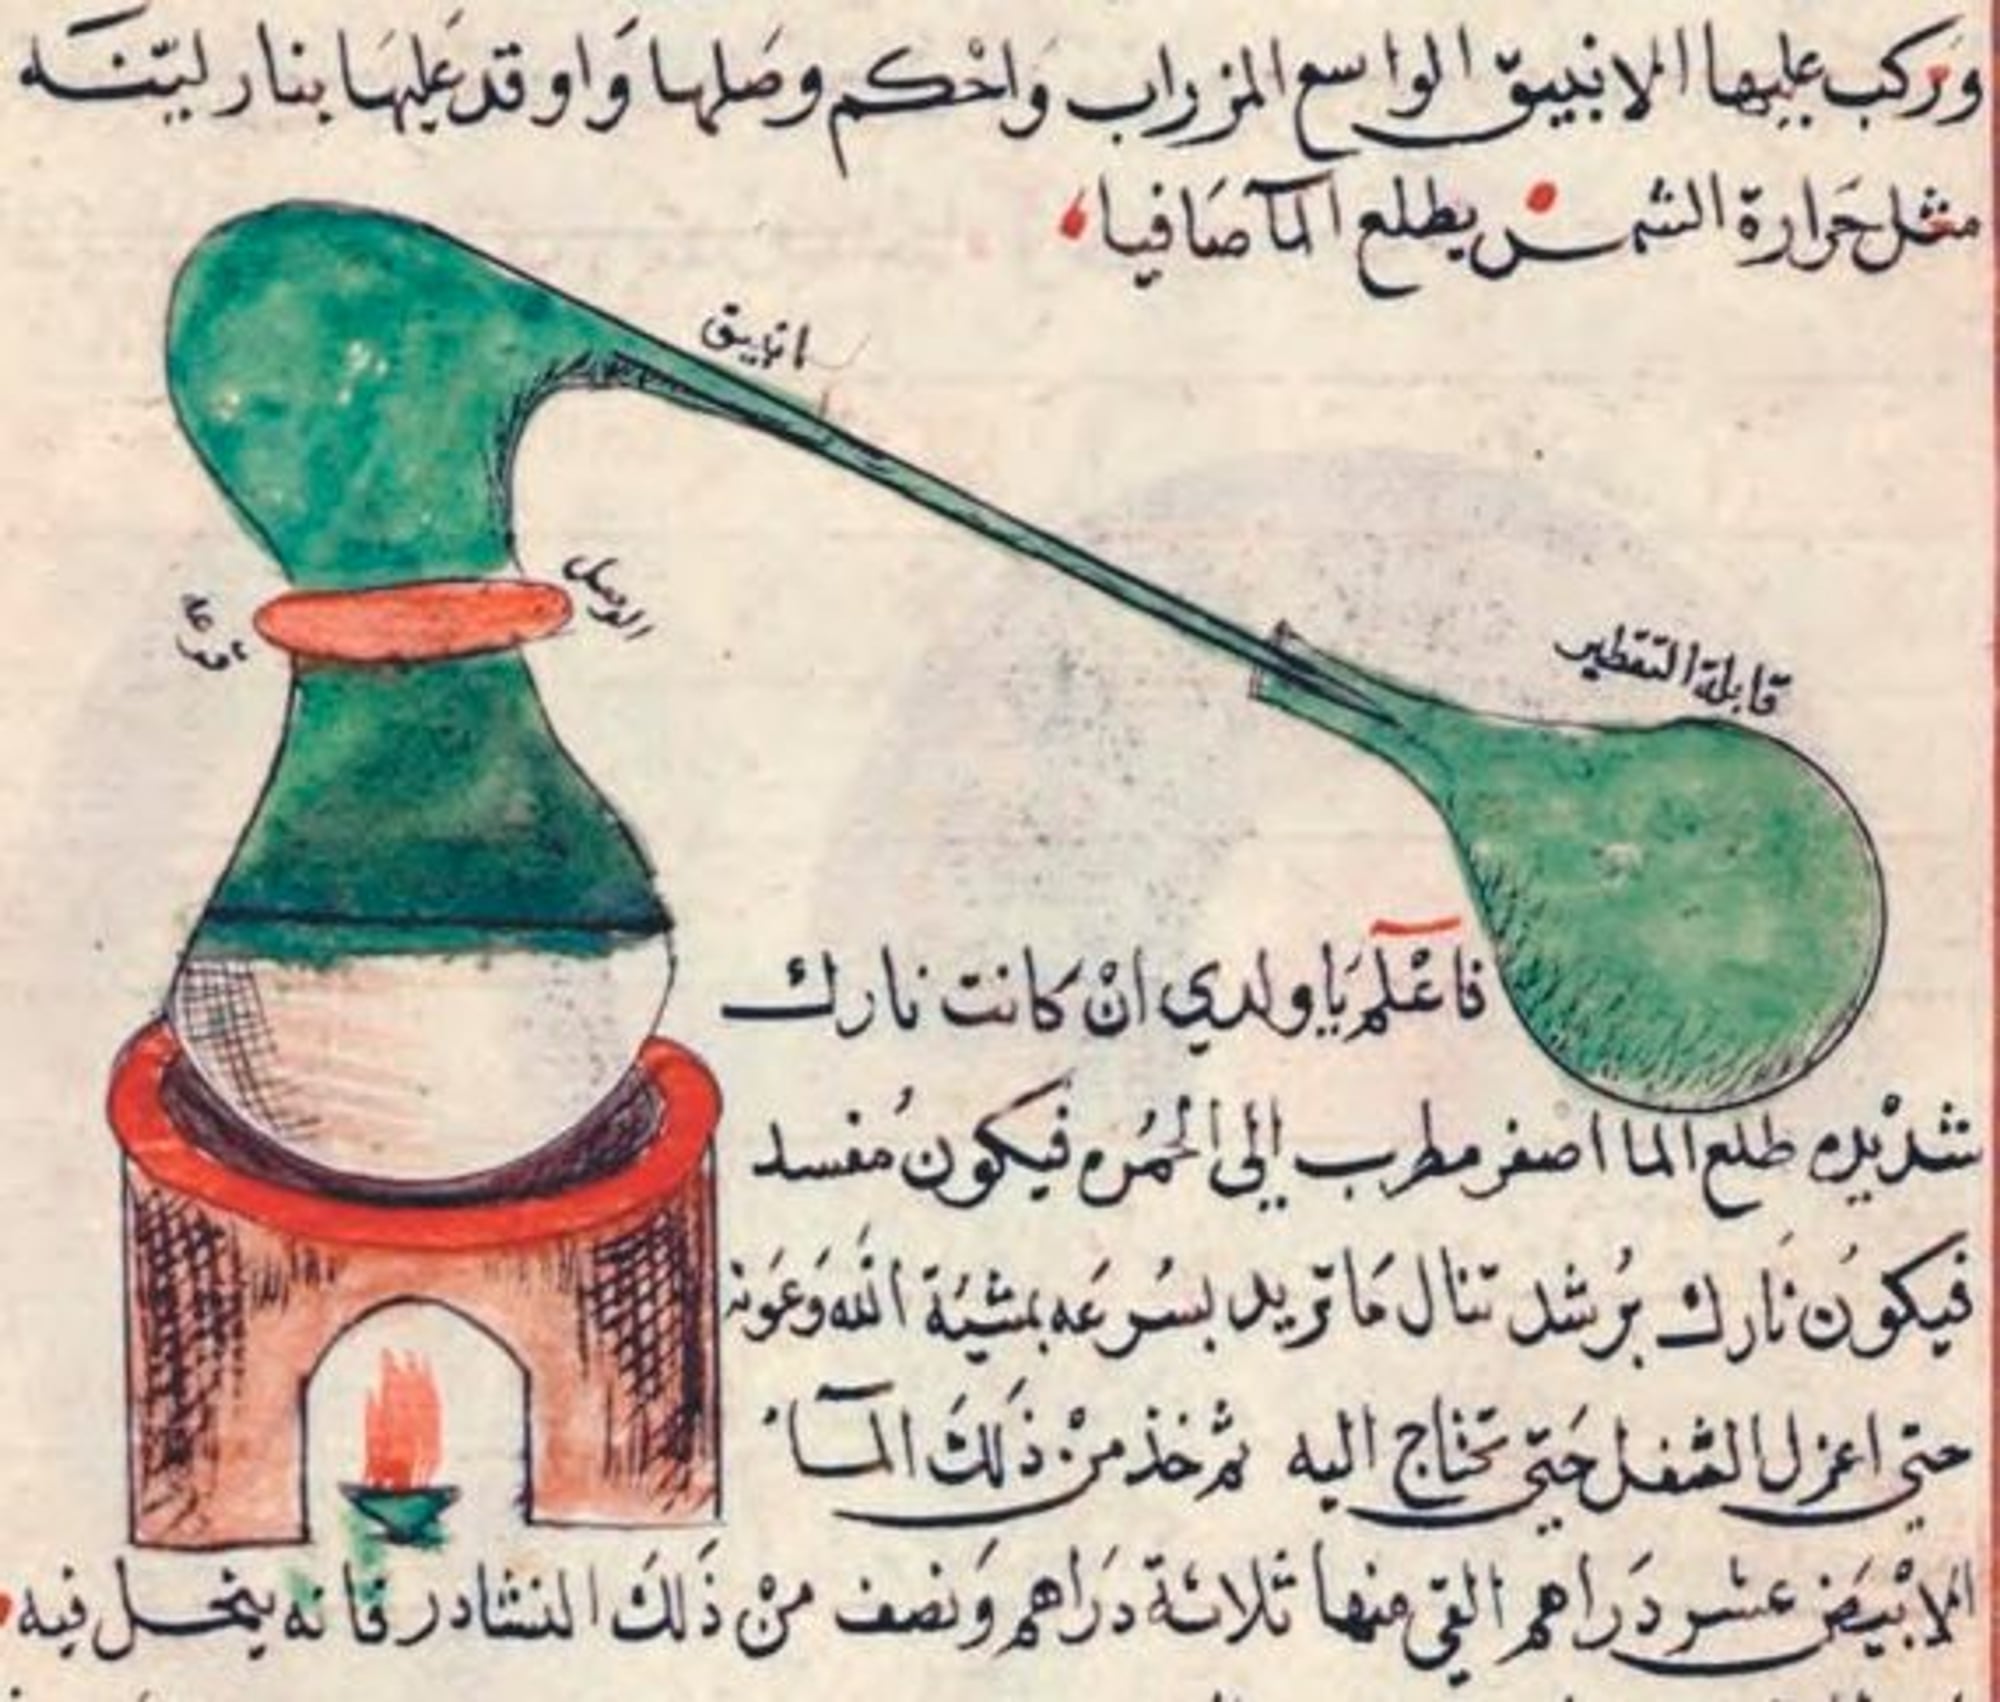 وَركب عليها الانبيق الواسع المزراب وَاحْكم وصَلها وَاوقد عَليهَا بنار ليّنَه
مثل حَرارة الشمس يطلع المآ صَافيا
انبيق
الوصل
قرعه
قابلة التقطير
فاعْلم يَا ولدي انْ كانت نارك
شدْيده طلع الما اصفر مطرب إلى الحُمْره فيكون مُفسد
فيكوُن نارك برُشد تنال مَا تريد بسُرعَه بمشيَة اللَّه وَعَونه
حتى اعزل الثفل حَتى تحتاج اليه ثم خذ منْ ذَلكَ المآء
الابْيَض عشر دَراهم القي منها ثلاثة دَراهم وَنصف منْ ذَلكَ النشادر فانه ينحل فيه